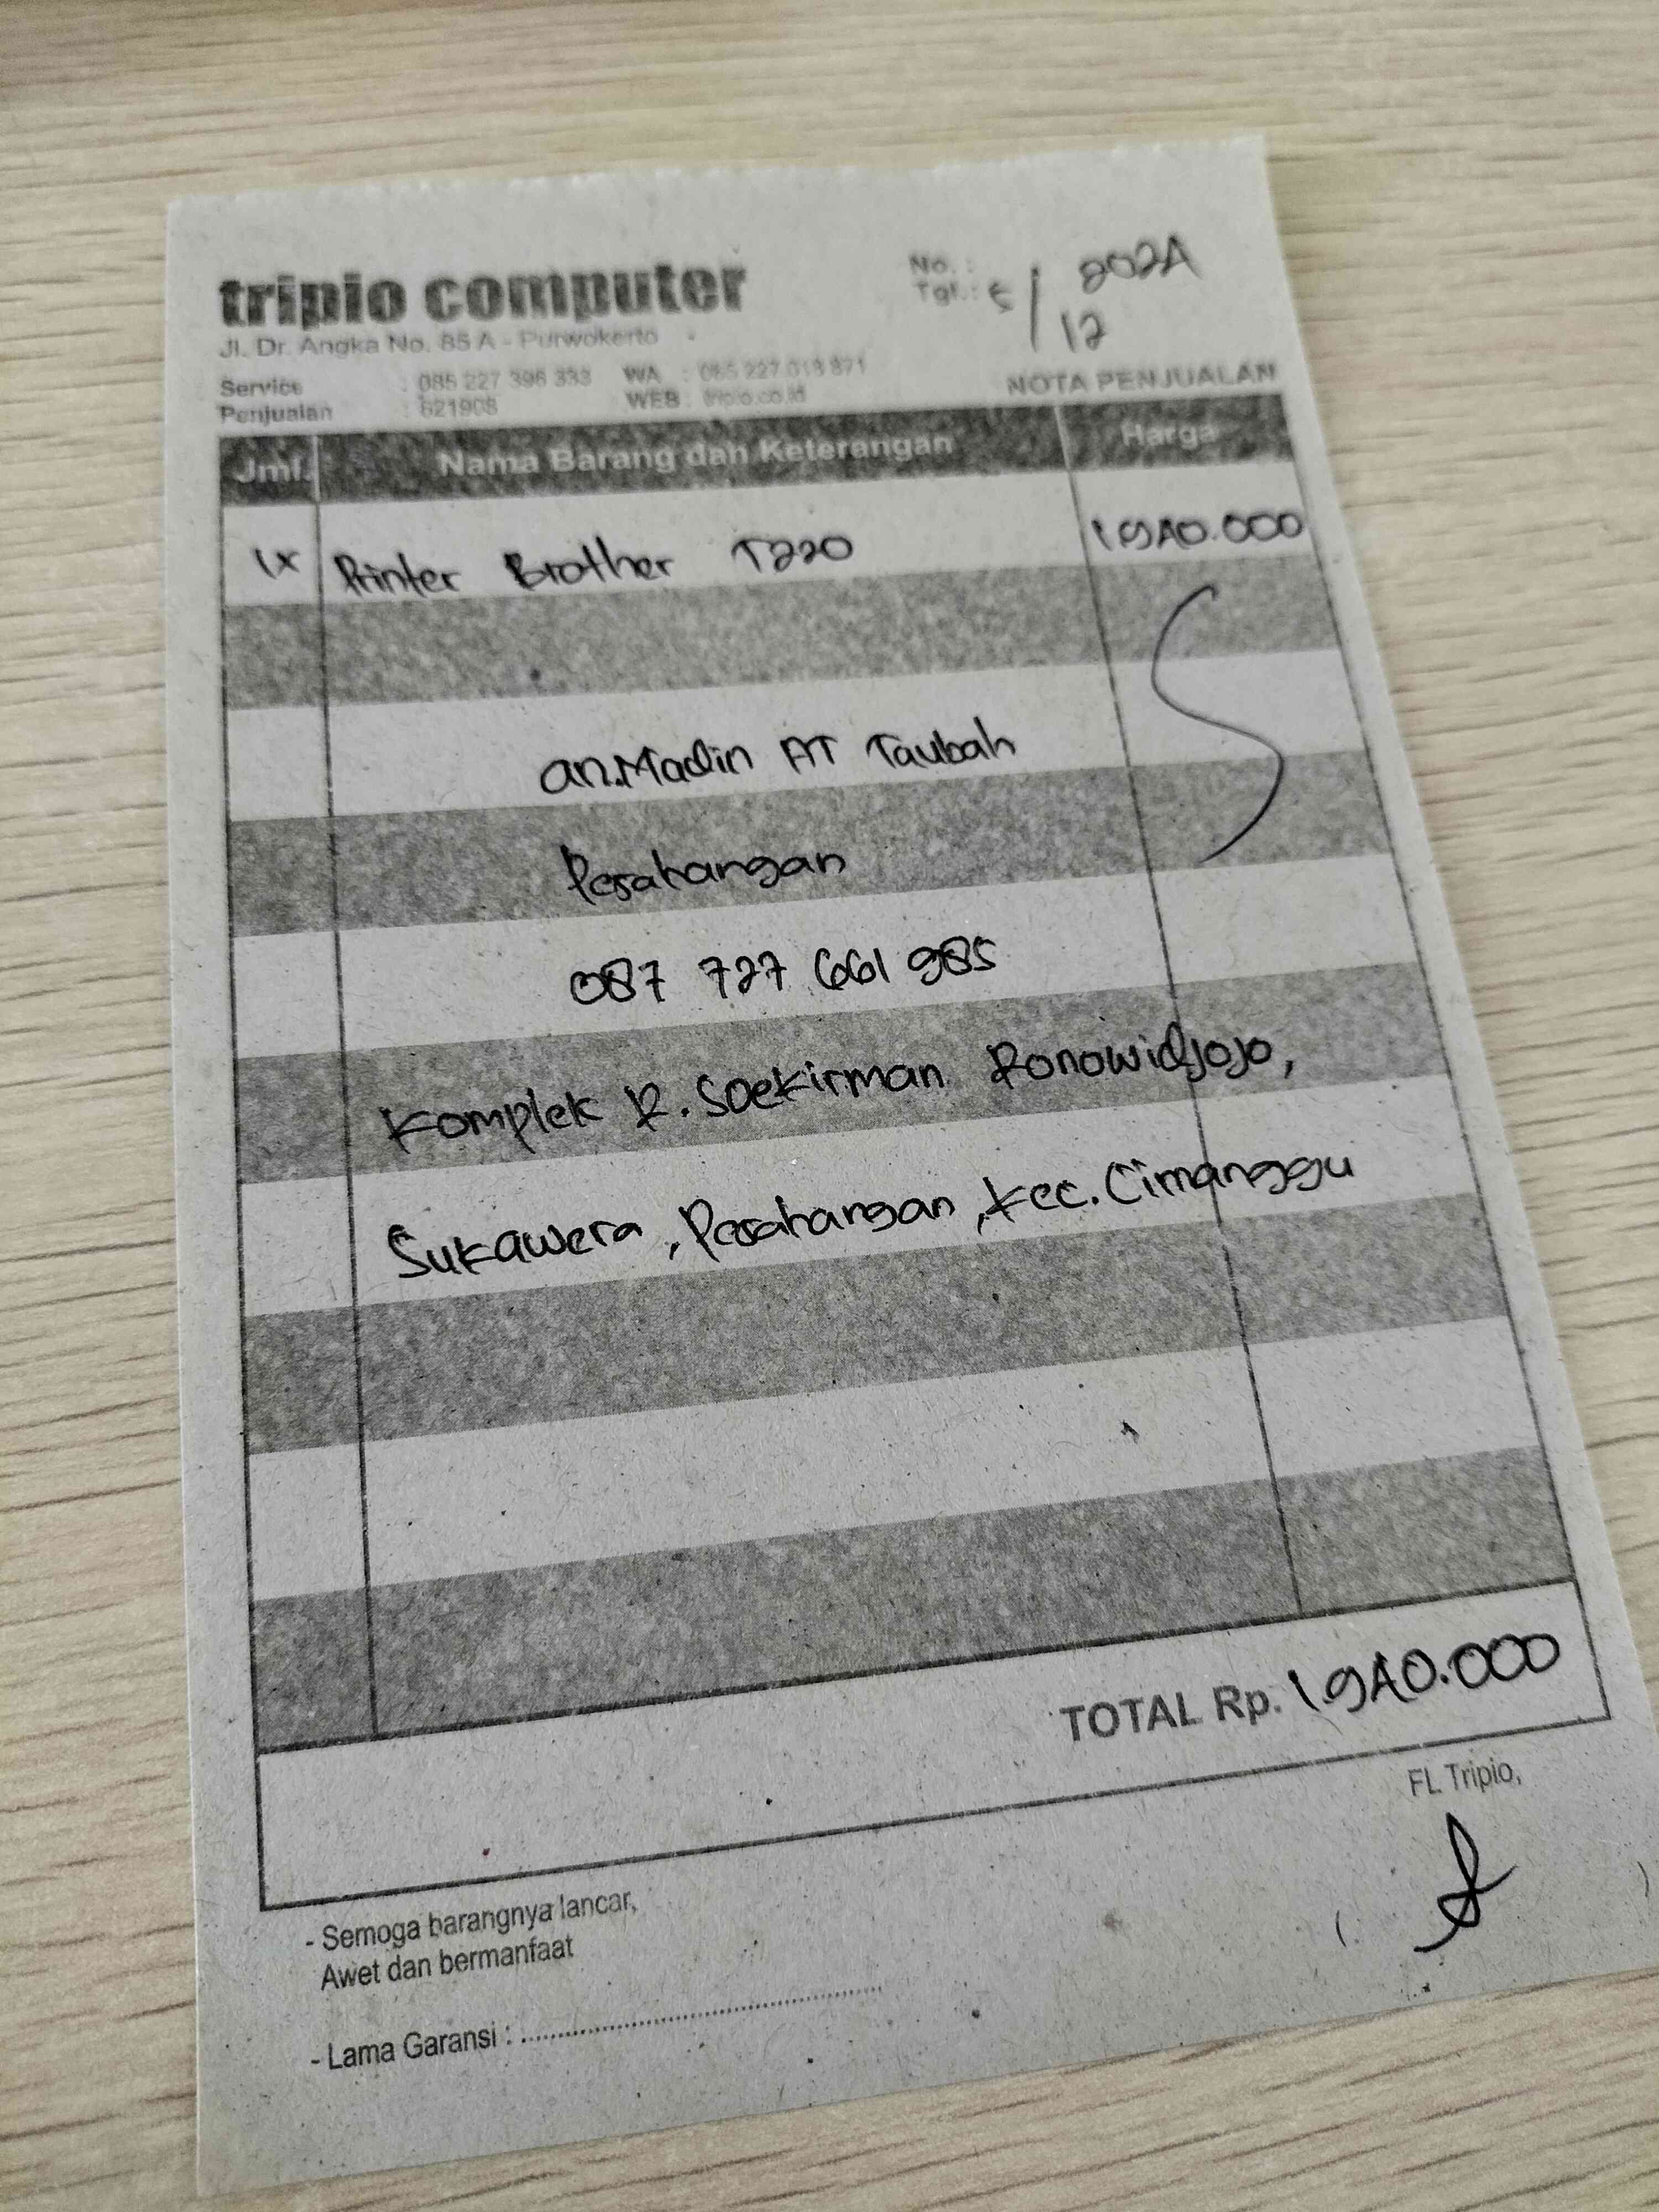 tripio computer
Jl. Dr. Angka No. 85 A - Purwokerto
No. :
Tgl. : 5/12 2024
Service : 085 227 396 333 WA : 085 227 013 871
Penjualan : 621908 WEB : tripio.co.id
NOTA PENJUALAN
Jml. Nama Barang dan Keterangan Harga
1x Printer Brother T220 1.940.000
an.Madin AT Taubah
Pesahangan
087 727 661 985
Komplek R. Soekirman Ronowidjojo,
Sukawera, Pesahangan, Kec. Cimanggu
TOTAL Rp. 1.940.000
FL Tripio,
( )
- Semoga barangnya lancar,
Awet dan bermanfaat
- Lama Garansi : ........................................